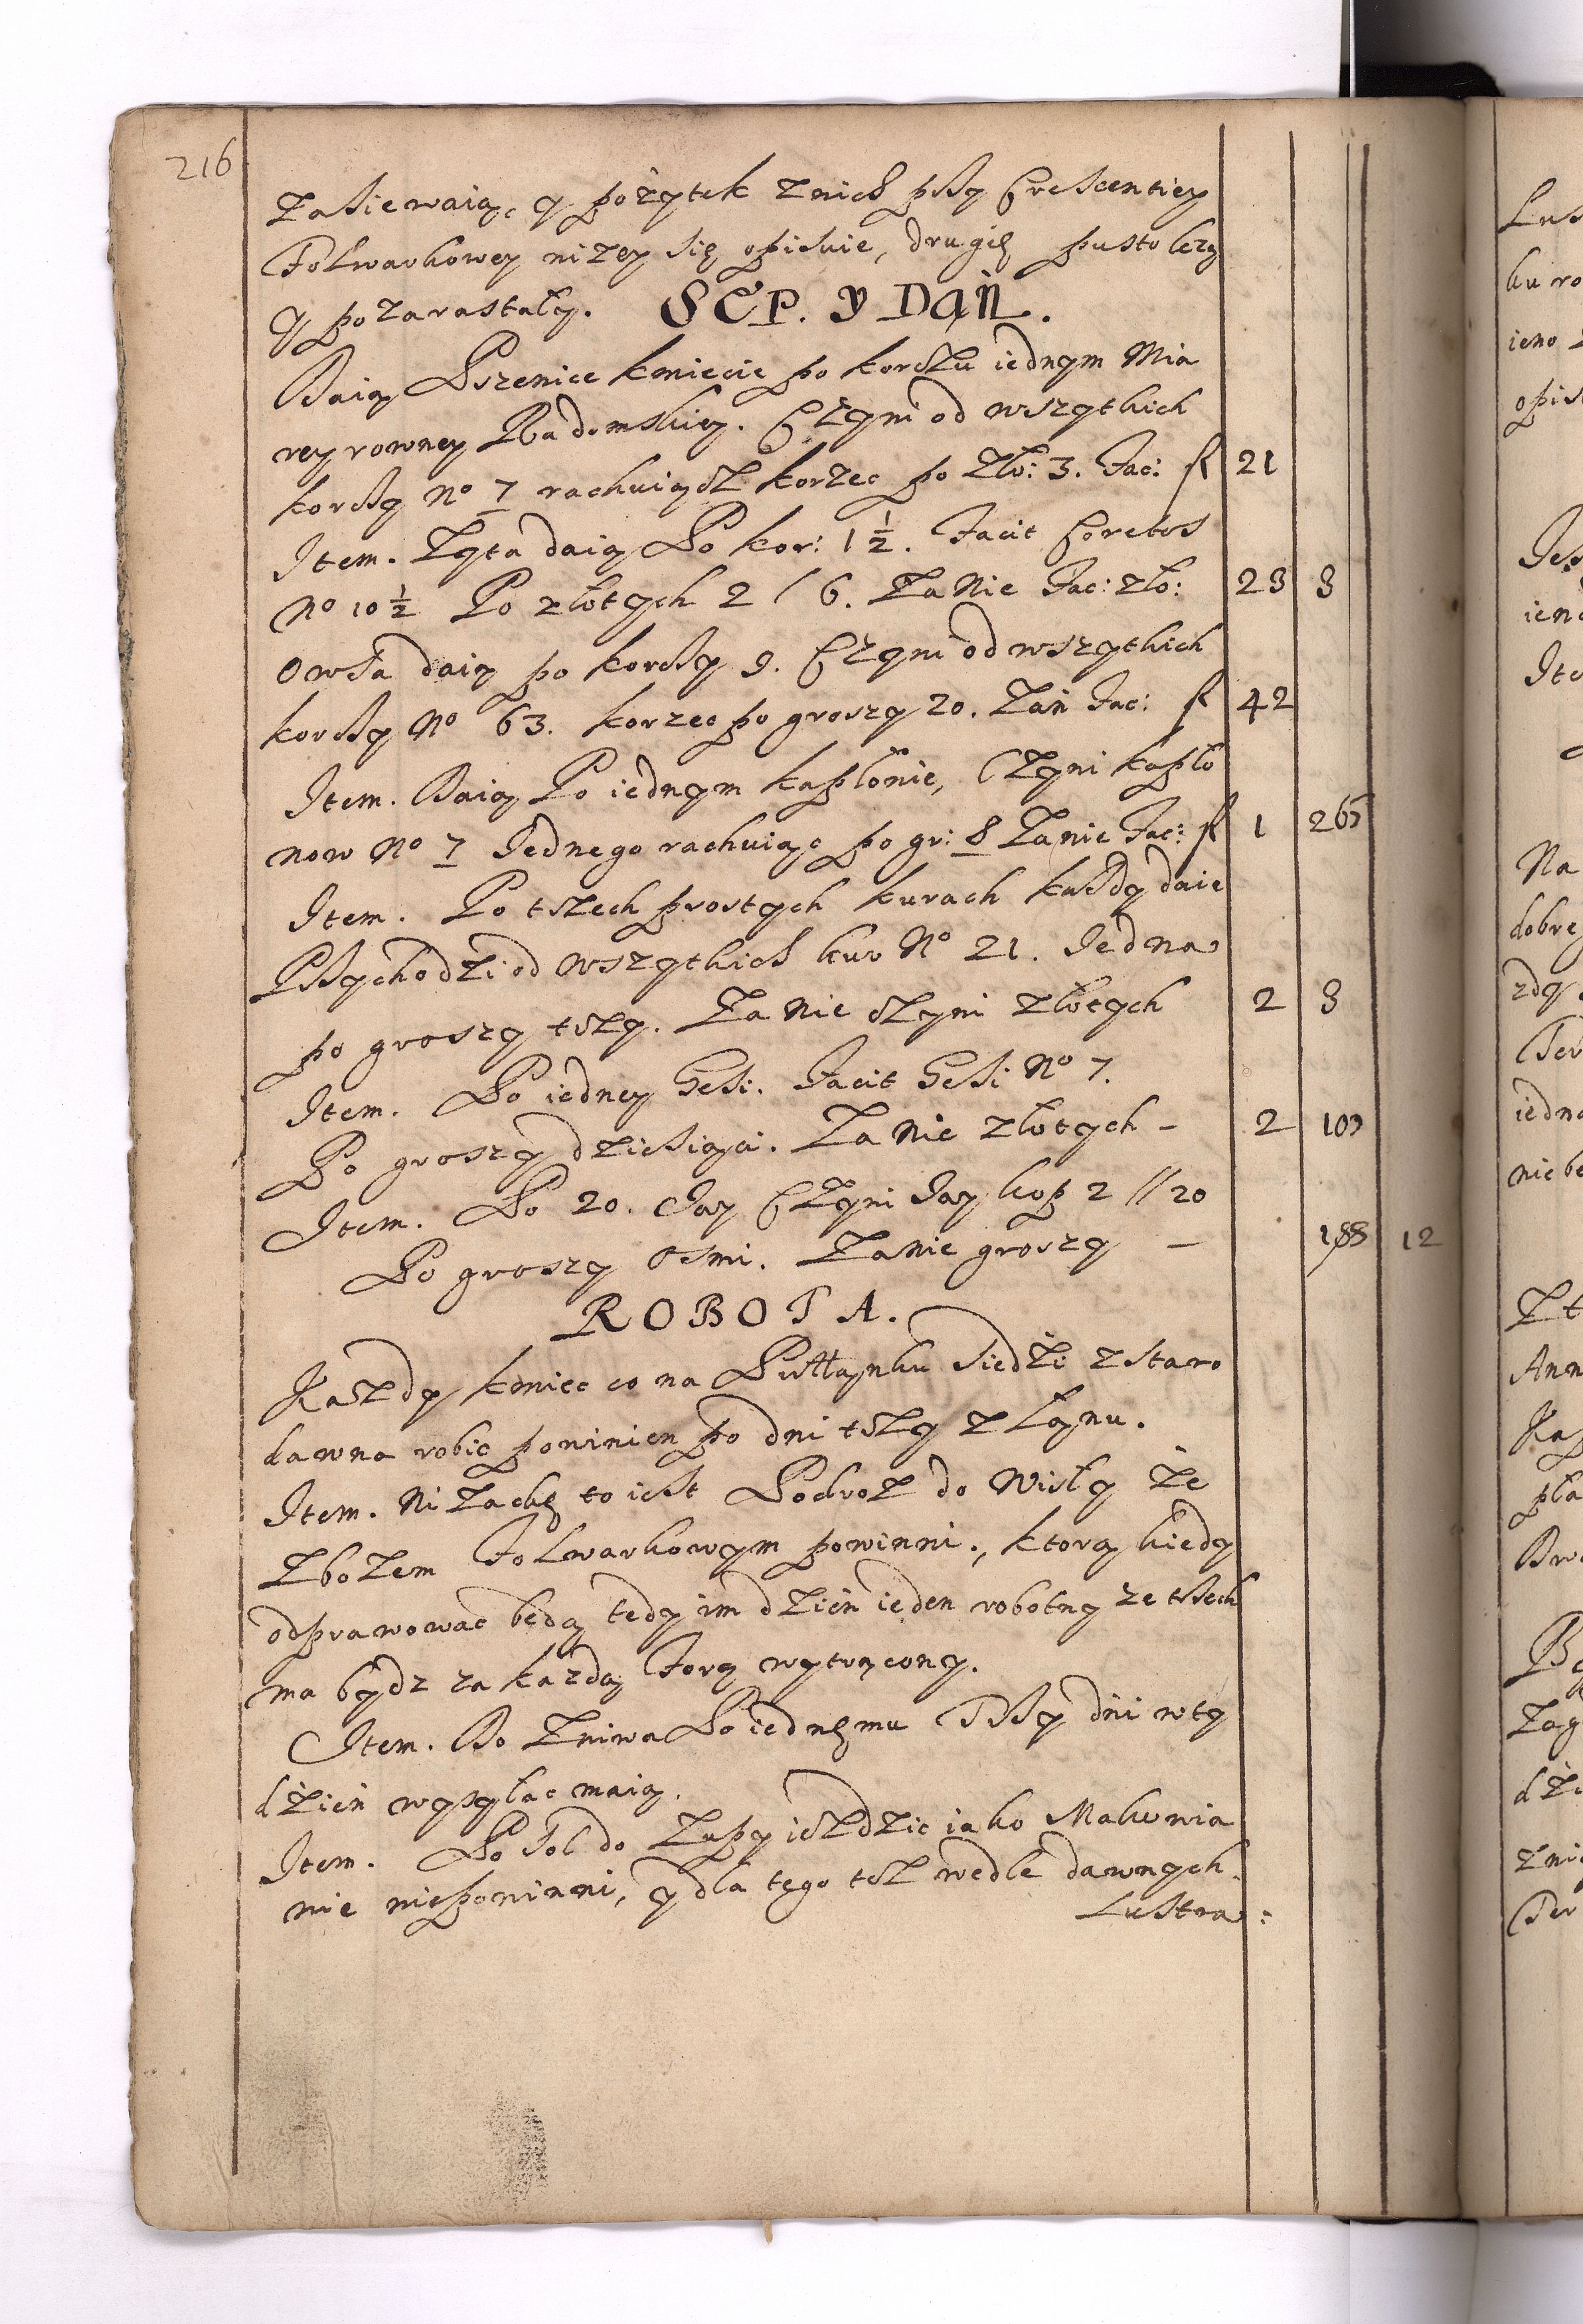 216
Zasiewaią, y pożytek z nich przy Crescentiey
Folwarkowey niżey się opisuie, drugie pusto leżą
y pozarastały. SEP. Y DAŃ.
Daią Pszenice kmiecie po korczu iednym Mia
rey rowney Radomskiey. Czyni od wszytkich
korcy No 7 rachuiącz korzec po zło: 3. Fac: f 21
Item. Zyta daią Po kor: 1 1/2. Facit Coretos
No 10 1/2 Po złotych 2 / 6. Za Nie Fac: zło: 23 3
Owsa daią po korcy 9. Czyni od wszytkich
korcy No 63. korzec po groszy 20. Zań Fac: f 42
Item. Daią Po iednym kapłonie, Czyni kapło
now No 7 Jednego rachuiąc po gr: 8 Za nie Fac: f 1 26
Item. Po trzech prostych kurach każdy daie
Przychodzi od wszytkich kur No 21. Jedna
po groszy trzy. Za Nie czyni złotych 2 3
Item. Po iedney Gęsi. Facit Gęsi No 7.
Po groszy dziesiąci. Za Nie złotych - 2 10
Item. Po 20. Jay Czyni Jay kop 2 // 20
Po groszy Osmi. Za nie groszy - 18 12
ROBOTA.
Kaszdy kmiec co na Pułłanku siedzi z staro
dawna robić powinien po dni trzy z Łanu.
Item. Ni Zacię to iest Podroż do Wisły ze
Zbożem Folwarkowym powinni, ktorą kiedy
odprawować będą tedy im dzień ieden robotny ze trzech
ma bydz za kazdą Forę wytrącony.
Item. Do Zniwa Po iednemu Trzy dni w ty
dzień wysyłac maią.
Item. Po Sol do Zupy ieździc iako Makowia
nie niepowinni, y dla tego też wedle dawnych
Lustra: